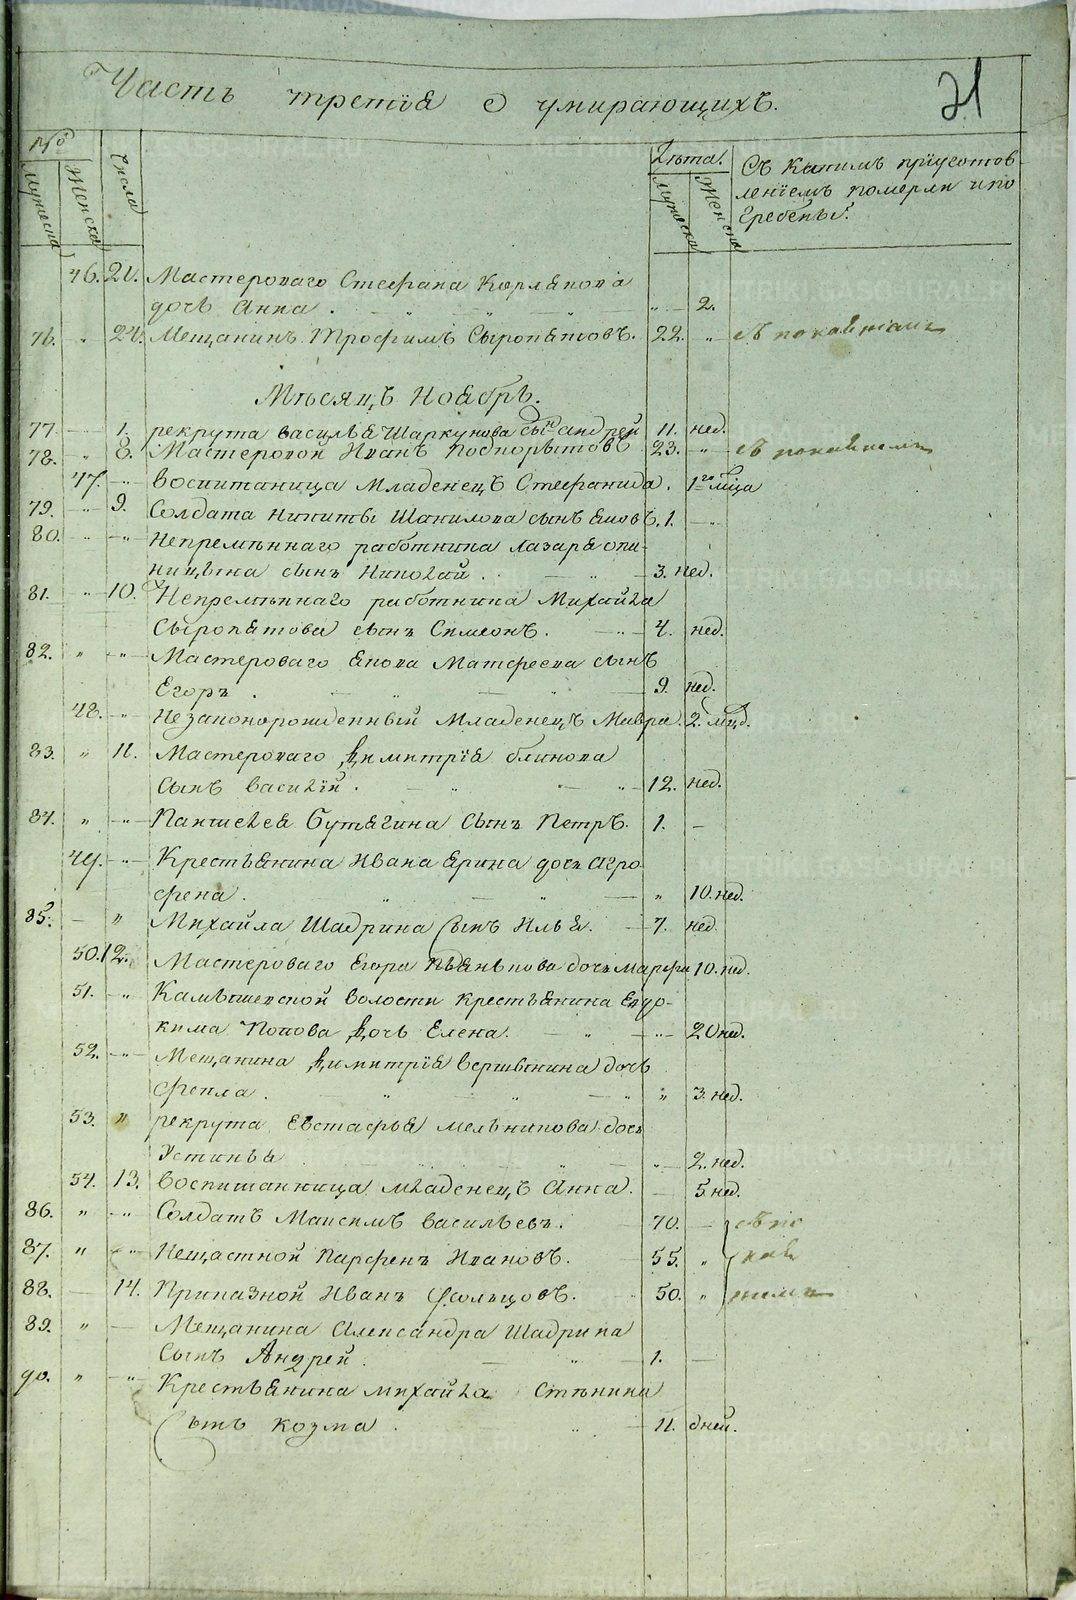 Часть третія о умирающихъ. 21
№
Мужеска Женска Числа
Лѣта. Мужеска Женска
Съ какимъ пріуготов-
леніемъ померли и по
гребены.
46. 21. Мастероваго Стефана Корляпова
дочь Анна. „ 2.
76. „ 24. Мещанинъ Трофимъ Сыропятовъ. 22. „ съ покаяніемъ
Мѣсяцъ Ноябрь.
77. 1. рекрута василья Шаркунова сынъ андрей 11. нед.
78. „ 8. Мастеровой Иванъ Подкорытовъ 23. „ съ покаяніемъ
47. „ воспитанница Младенецъ Стефанида. 1го мца
79. „ 9. Солдата никиты Шапилова сынъ яковъ. 1. —
80. „ „ Непремѣннаго работника лазаря опи-
ницына сынъ Николай. „ 3. нед.
81. „ 10. Непремѣннаго работника Михайла
Сыропятова сынъ Симеонъ. „ 4. нед.
82. „ „ Мастероваго якова Матфеева сынъ
Егоръ. „ 9. нед.
48. „ Незаконорожденный Младенецъ Мавра. 2. мцд.
83. „ 11. Мастероваго димитрія блинова
сынъ василій. „ 12. нед.
84. „ „ Пантелея Бутягина сынъ Петръ. 1. —
49. „ Крестьянина Ивана ярина дочь агро
фена. „ 10. нед.
85. — „ Михайла Шадрина сынъ Илья. 7. нед.
50. 12. Мастероваго Егора пьянкова дочь марфа 10. нед.
51. „ Камышевской волости крестьянина Евдо-
кима Попова дочь Елена. „ 20 нед.
52. „ Мещанина димитрія вершинина дочь
фекла. „ 3. нед.
53. „ рекрута Евстафья мельникова дочь
Устинья „ 2. нед.
54. 13. воспитанница младенецъ Анна. — 5 нед.
86. „ „ Солдатъ Максимъ васильевъ. 70. — съ по
87. „ „ Нещастной Парфенъ Ивановъ. 55. „ кая
88. — 14. Приказной Иванъ Фольцовъ. 50. „ ніемъ
89. „ — Мещанина Александра Шадрина
сынъ Андрей. „ 1. —
90. „ „ Крестьянина михайла Стѣнина
сынъ козма. „ 11. дней.